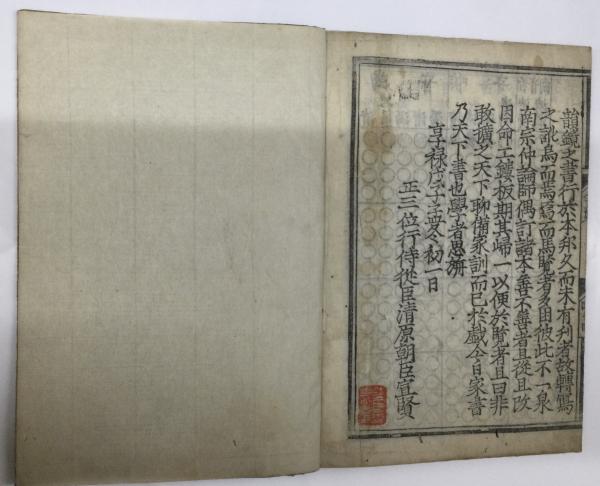 韻鏡之書行於本邦久而未有刊者故轉寫
之訛烏而焉焉而馬覽者多困彼此不一泉
南宗仲論師偶訂諸本善不善者且從且改
因命工鏤板期其歸一以便於覽者且曰非
敢擴之天下聊備家訓而已於戲今日家書
乃天下書也學者思旃
享祿戊子孟冬初一日
正三位行侍從臣清原朝臣宣賢